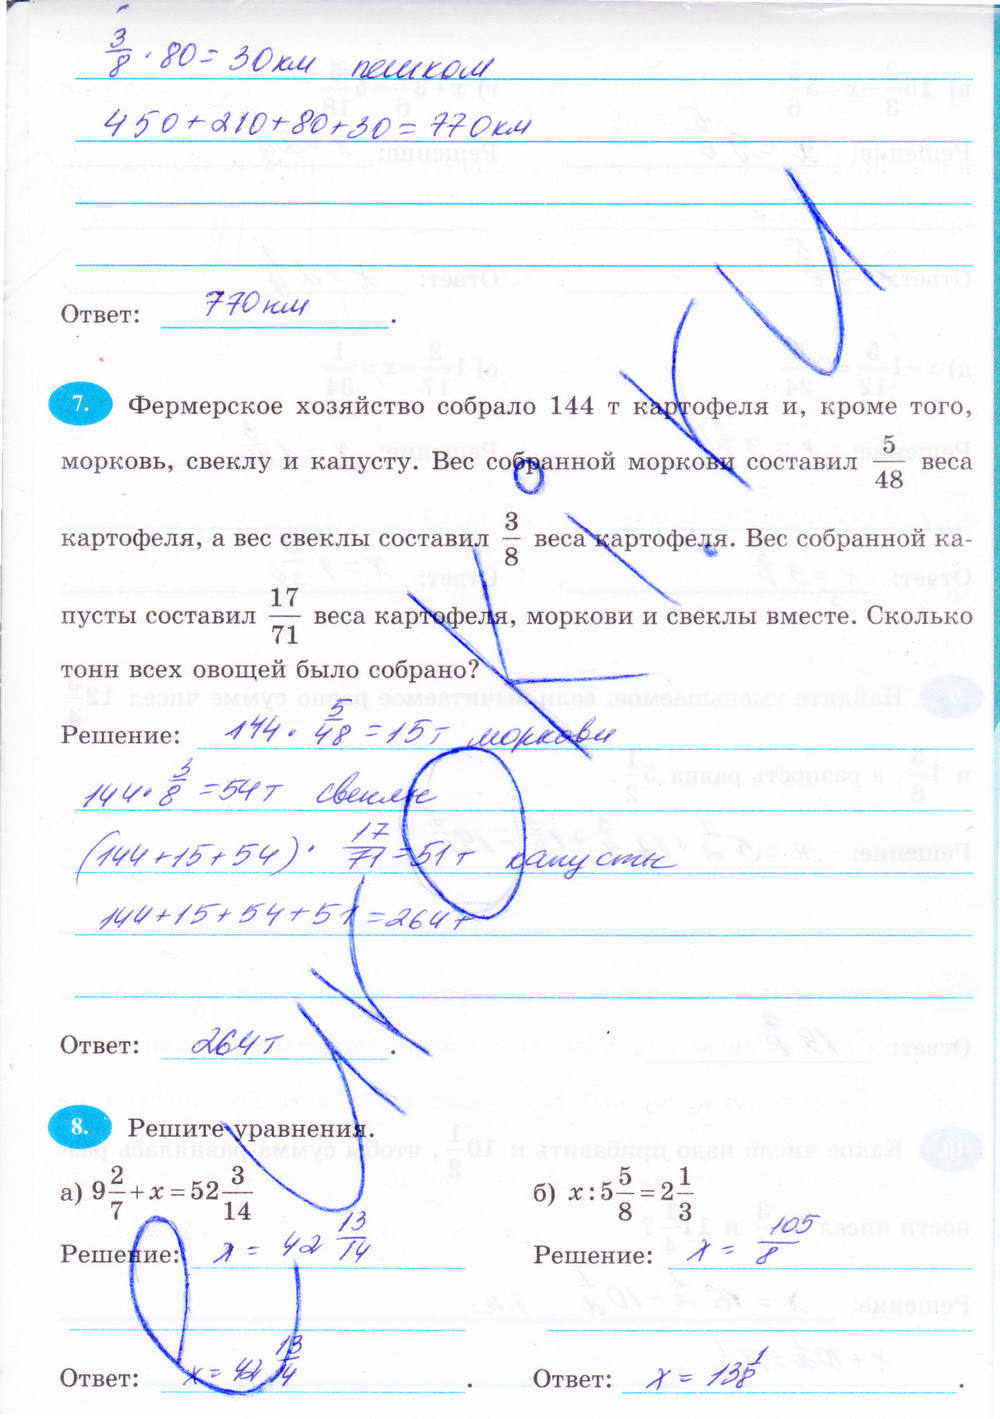 3/8 · 80 = 30 км пешком
450+210+80+30=770 км
Ответ: 770 км.
7. Фермерское хозяйство собрало 144 т картофеля и, кроме того,
морковь, свеклу и капусту. Вес собранной моркови составил 5/48 веса
картофеля, а вес свеклы составил 3/8 веса картофеля. Вес собранной ка-
пусты составил 17/71 веса картофеля, моркови и свеклы вместе. Сколько
тонн всех овощей было собрано?
Решение: 144 · 5/48 = 15 т моркови
144 · 3/8 = 54 т свеклы
(144+15+54) · 17/71 = 51 т капусты
144+15+54+51=264 т
Ответ: 264 т.
8. Решите уравнения.
а) 9 2/7 + x = 52 3/14
б) x : 5 5/8 = 2 1/3
Решение: x = 42 13/14
Решение: x = 105/8
Ответ: x = 42 13/14.
Ответ: x = 13 1/8.